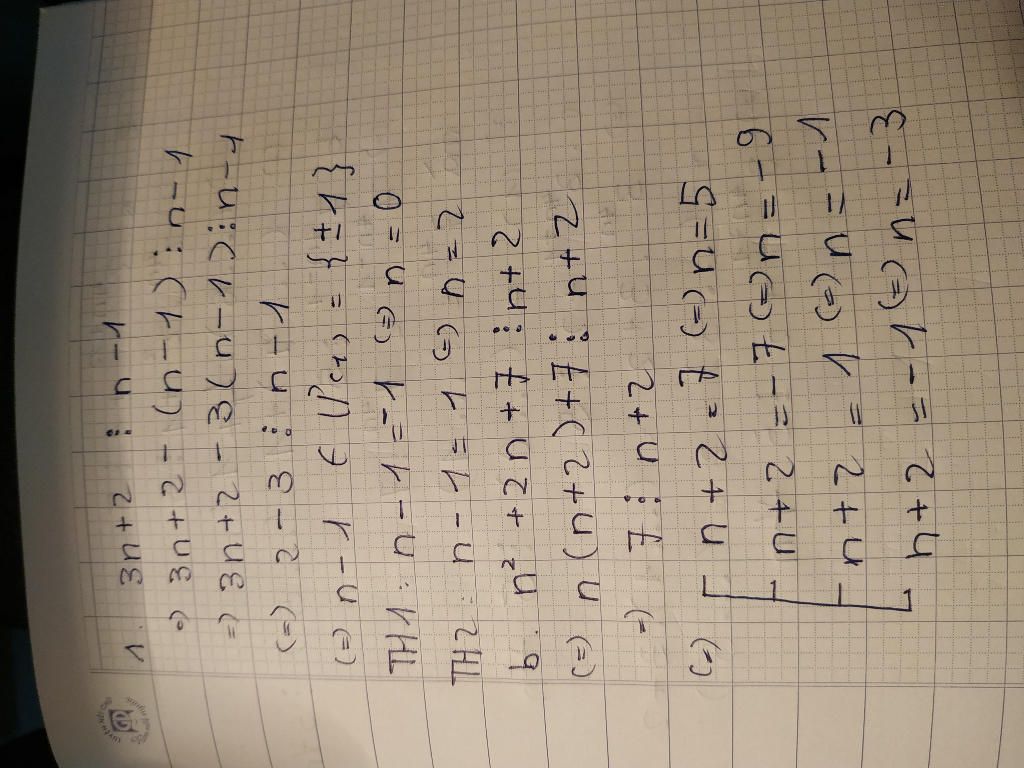 1. 3n+2 ⋮ n-1
=) 3n+2-(n-1) ⋮ n-1
=) 3n+2-3(n-1) ⋮ n-1
(=) 2-3 ⋮ n-1
(=) n-1 ∈ Ư(1) = {±1}
TH1: n-1=-1 (=) n=0
TH2: n-1=1 (=) n=2
b. n²+2n+7 ⋮ n+2
(=) n(n+2)+7 ⋮ n+2
=) 7 ⋮ n+2
(=) [ n+2=7 (=) n=5
n+2=-7 (=) n=-9
n+2=1 (=) n=-1
n+2=-1 (=) n=-3